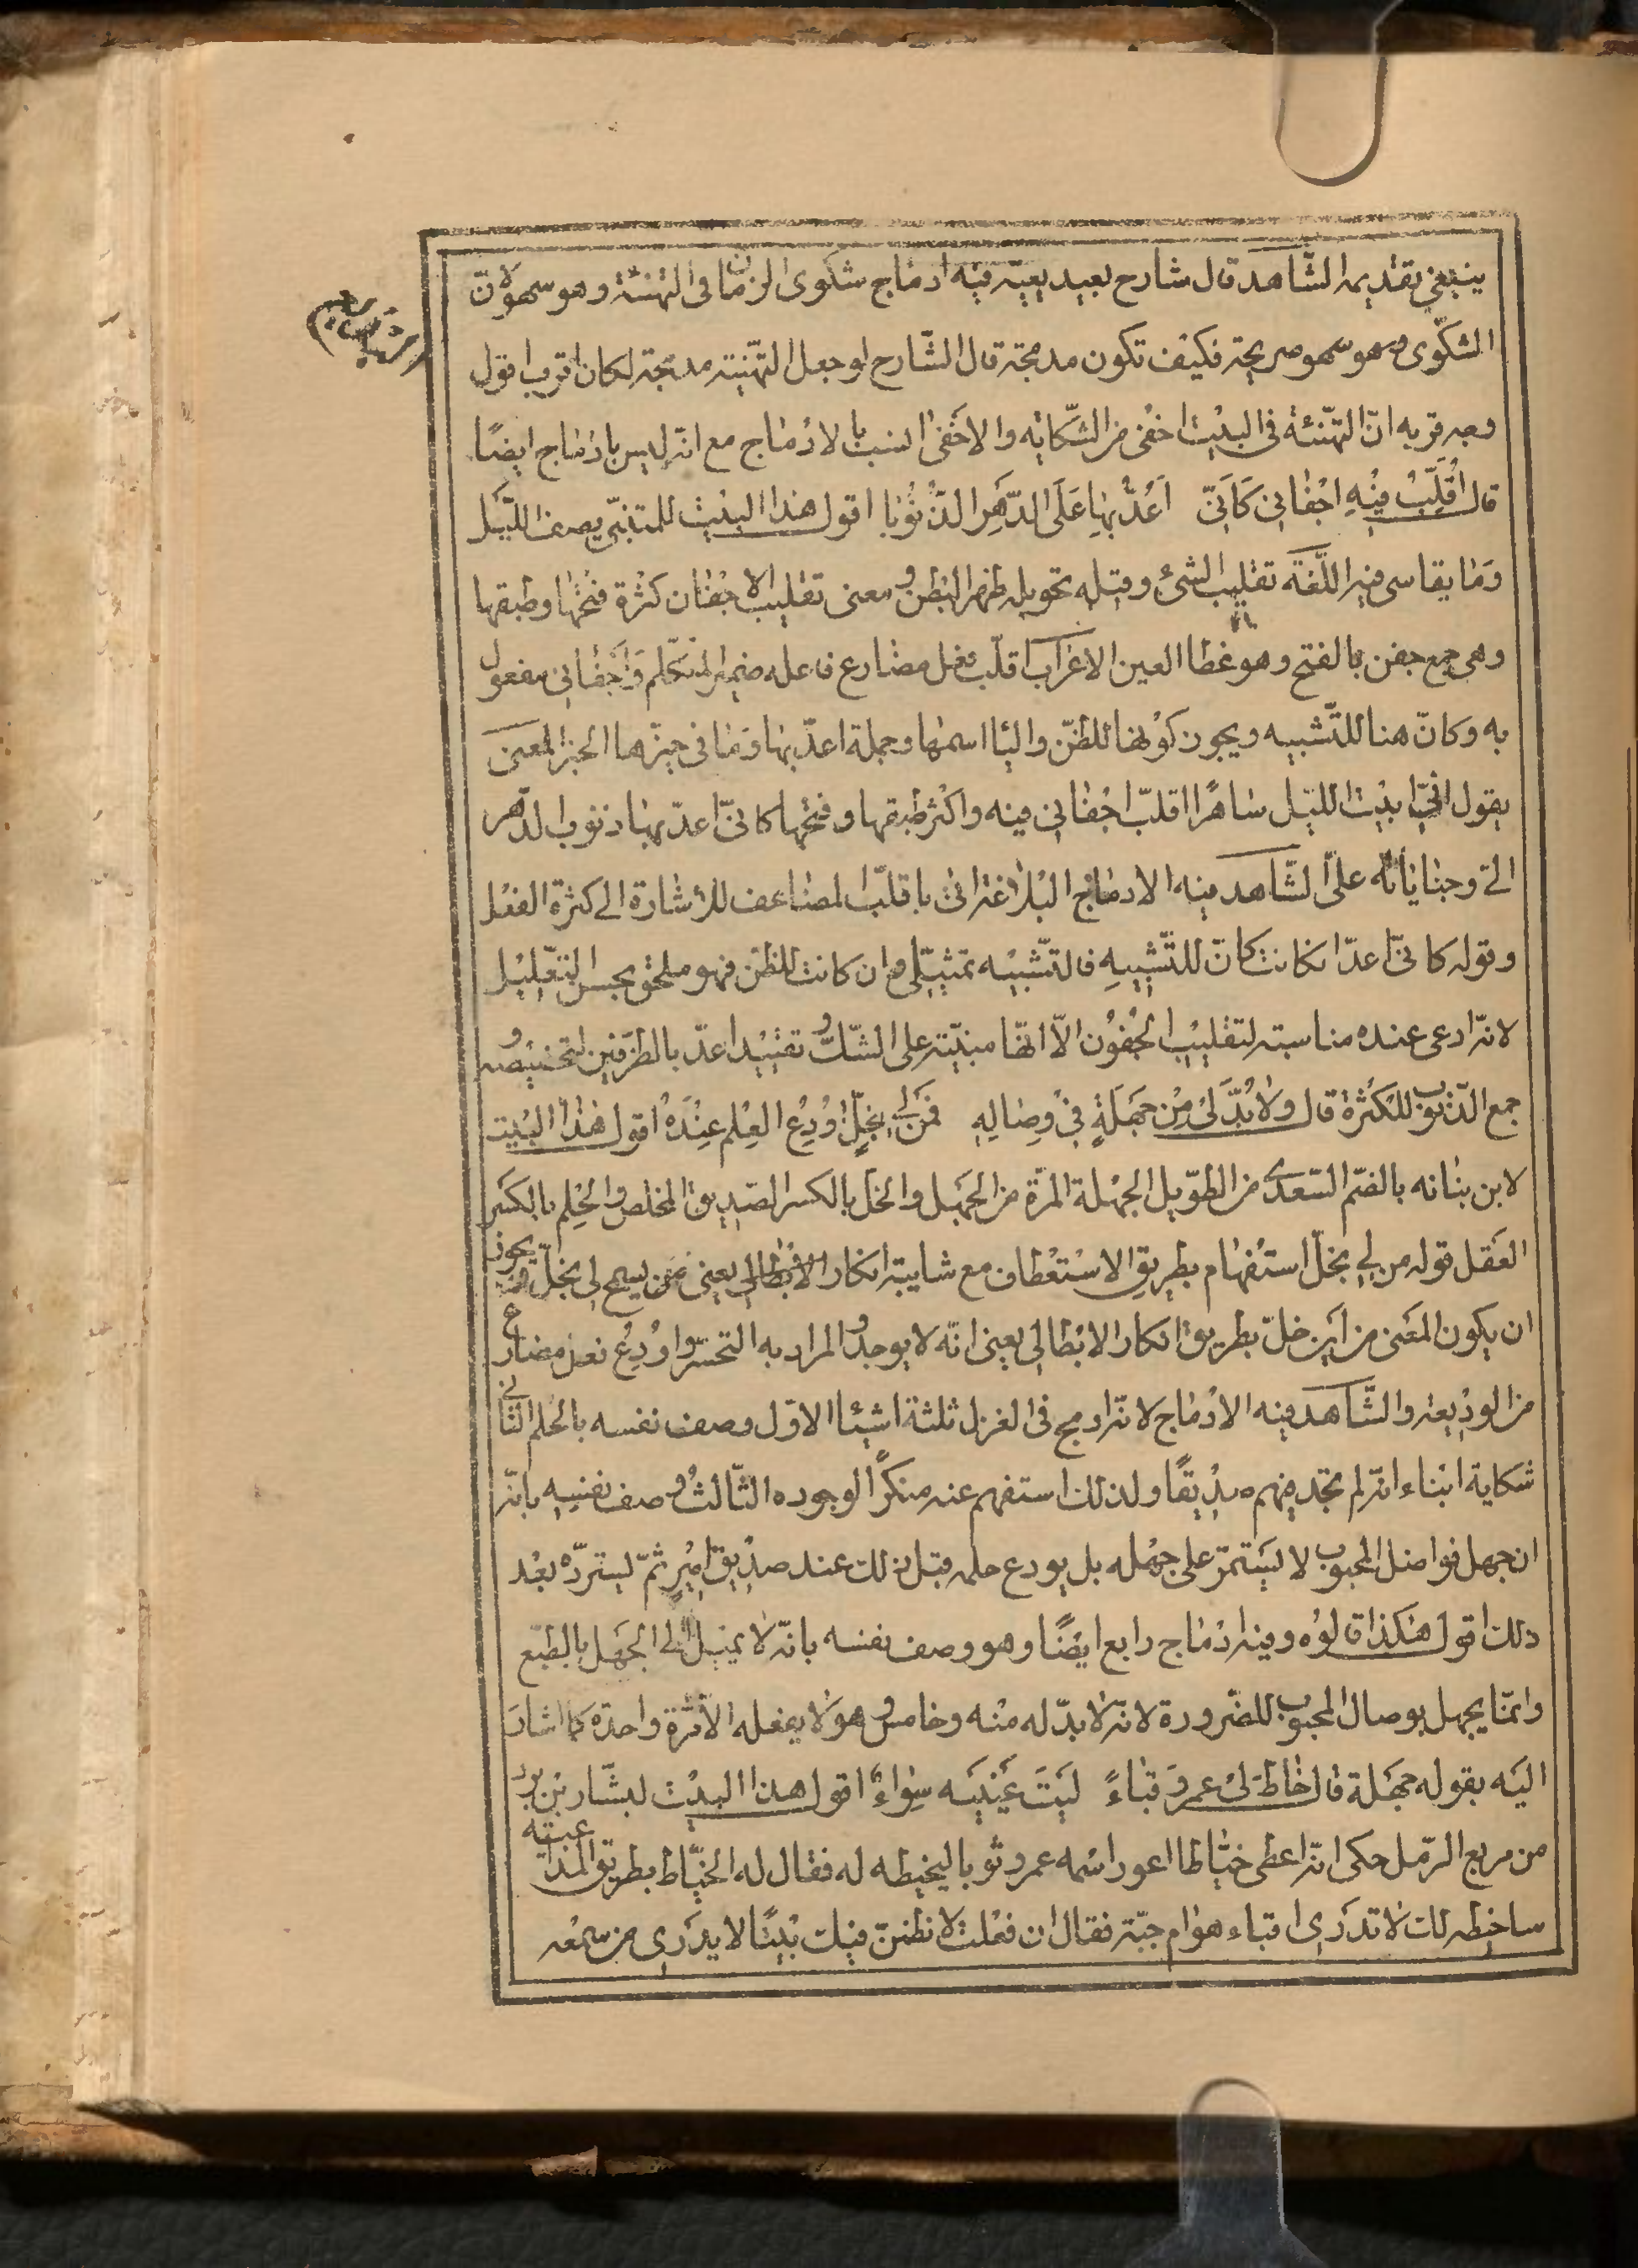 ينبغي تقديمه الشّاهد قال شارح بعيد يعيّه فيه ادماج شكوى الزمان فى التهنئة وهو سهو لانّ
الشكوى وهو سهو صريحة فكيف تكون مدمجة قال الشّارح لو جعل التهنئة مدمجة لكان اقرب اقول
وجه قربه انّ التهنئة فى البيت اخفى من الشّكايه والاخفى انسب بالادماج مع انه ليس بادماج ايضًا
قال اُقَلِّبُ فِيْهِ اجْفانِي كَاَنِّي اَعُدُّ بِهَا عَلَى الدَّهْرِ الذُّنُوْبَا اقول هذا البيت للمتنبّي يصف اللّيل
وَمَا يقاسى فيه اللّغة تقليب الشئ وقبله تحويله ظهر البطن ومعنى تقليب الاجفان كثرة فتحها وطبقها
وهى جمع جفن بالفتح وهو غطا العين الاعراب اقلّب فعل مضارع فاعله ضمير المتكلّم وَاَجْفانى مفعول
به وكانّ هنا للتّشبيه ويجوز كونها للظنّ واليا اسمها وجملة اعدّ بها وَمَا فى حيزّها الخبر المعنى
يقول انّي ابيت الليل ساهرًا اقلّب اجفاني فيه واكثر طبقها وفتحها كانّى اعدّ بها ذنوب الدّهر
الىّ وجناياته علىّ الشّاهد فيه الادماج البلاغة اتى باقلّب المضاعف للاشارة الى كثرة الفعل
وقوله كانّى اعدّ ان كانت كانّ للتّشبيهِ فالتّشبيه تمثيلى وان كانت للظنّ فهو ملحق بحسن التعليل
لانّه ادعى عنده مناسبته لتقليب الجفون الاّ انّها مبنيّة على الشّكّ وتقييد اعدّ بالطرفين لتخصيصه و
جمع الذّنوب للكثرة قال وَلاَ بُدَّ لِىْ مِنْ جَهْلَةٍ فِيْ وِصَالِهِ فَمَنْ لِى بِخِلٍّ اُوْدِعُ الحِلْمَ عِنْدَهُ اقول هذا البيت
لابن نباته بالضّم السّعدى من الطّويل الجهلة المرّة من الجهل والخلّ بالكسر الصّديق المخلص والحِلم بالكسر
العَقل قوله من لى بخلّ استفهام بطريق الاستعطاف مع شايبة انكار الابطالى يعنى فمن يسمح لى بخلّ ويجوز
ان يكون المعنى من اين خلّ بطريق انكار الابطالى يعنى انّه لا يوجد والمراد به التحسّر واودع فعل مضارع
من الوديعة والشّاهد فيه الادماج لانّه ادمج فى الغزل ثلثة اشيئا الاوّل وصف نفسه بالحلم الثّانى
شكاية ابناء انّه لم يجد فيهم صديقًا ولذلك استفهم عنه منكرًا لوجوده الثّالث وصف نفسِه بانّه
ان جهل فواصل المحبوب لا يستمرّ على جهله بل يودع حلمه قبل ذلك عند صديق امين ثمّ يستردّه بعد
ذلك اقول هٰكذا قالوه وفيه ادماج رابع ايضًا وهو وصف نفسه بانّه لا يميل الى الجهل بالطبع
وانّما يجهل بوصال المحبوب للضّرورة لانّه لا بدّ له منه وخامس وهو لا يفعله الاّ مرّة واحدة كما اشار
اليه بقوله جهلة قال خَاطَ لِىْ عمروٌ قباءً لَيْتَ عَيْنَيْه سِواءٌ اقول هذا البيت لبشّار بن برد
من مربع الرّمل حكى انّه اعطى خيّاطا اعور اسمه عمرو ثوبا ليخيطه له فقال له الخيّاط بطريق المداعبة
ساخيطه لك لا تدرى اقباء هو ام جبّة فقال ان فعلت لانظمنّ فيك بيتًا لا يدرى من سمعه